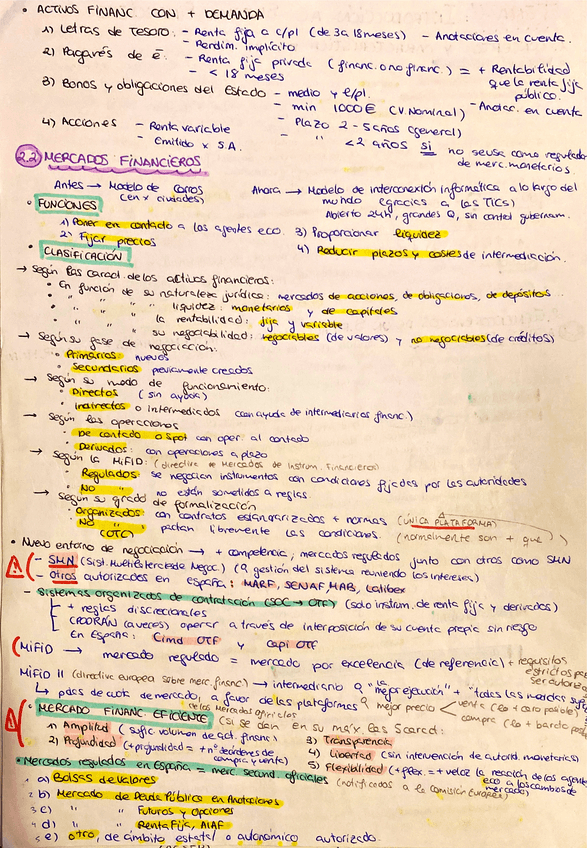 • ACTIVOS FINANC CON + DEMANDA
1) Letras de Tesoro: - Renta fija a c/pl (de 3 a 18 meses) - Anotaciones en cuenta.
- Rendim. implícito
2) Pagarés de e. - Renta fija privada (financ. o no financ.) = + Rentabilidad
- < 18 meses que la renta fija
público.
3) Bonos y obligaciones del Estado - medio y l/pl. - Anotac. en cuenta
- min 1000 € (V Nominal)
- Plazo 2-5 años (general)
4) Acciones - Renta variable - " <2 años si no se usa como regulador
- Emitido x S.A. de merc. monetarios
2.2 MERCADOS FINANCIEROS
Antes → Modelo de corros Ahora → Modelo de interconexión informática a lo largo del
(en x ciudades) mundo (gracias a las TICs)
• FUNCIONES Abierto 24h, grandes Q, sin control gubernam.
1) Poner en contacto a los agentes eco. 3) Proporcionar liquidez
2) Fijar precios 4) Reducir plazos y costes de intermediación.
• CLASIFICACIÓN
→ Según las caract. de los activos financieros:
• En función de su naturaleza jurídica: mercados de acciones, de obligaciones, de depósitos...
• " " " " liquidez: monetarios y de capitales
• " " " la rentabilidad: fija y variable
• " " " su negociabilidad: negociables (de valores) y no negociables (de créditos)
→ Según su fase de negociación:
• Primarios: nuevos
• Secundarios: previamente creados
→ Según su modo de funcionamiento:
• Directos (sin ayuda)
• Indirectos o intermediados (con ayuda de intermediarios financ.)
→ Según las operaciones
• De contado o Spot con oper. al contado
• Derivados: con operaciones a plazo
→ Según la MiFID: (directiva de Mercados de Instrum. Financieros)
• Regulados: se negocian instrumentos con condiciones fijadas por las autoridades
• No " no están sometidos a reglas.
→ Según su grado de formalización
• Organizados: con contratos estandarizados + normas (ÚNICA PLATAFORMA)
• No " (OTC) pactan libremente las condiciones. (normalmente son + que )
• Nuevo entorno de negociación → + competencia, mercados regulados junto con otros como SMN
- SMN (Sist. Multilaterales de Negoc.) (Q gestión del sistema reuniendo los intereses)
- Otros autorizados en España: MARF, SENAF, MAB, Latibex
- Sistemas organizados de contratación (SOC → OTF) (solo instrum. de renta fija y derivados)
+ reglas discrecionales
(PODRÁN (a veces) operar a través de interposición de su cuenta propia sin riesgo
En España: Cimd OTF y Capi OTF
MiFID → mercado regulado = mercado por excelencia (de referencia) + requisitos
estrictos para
ser autoriz
MiFID II (directiva europea sobre merc. financ) → intermediario Q "la mejor ejecución" + "todas las medidas sufi
↳ pdas de cuota de mercado, a favor de las plataformas Q mejor precio < venta (lo + caro posible)
de los mercados oficiales compra (lo + barato pos
• MERCADO FINANC. EFICIENTE (si se dan en su máx. las 5 caract:
1) Amplitud (sufic volumen de act. financ) 3) Transparencia
2) Profundidad (+ profundidad = + nº de órdenes de 4) Libertad (sin intervención de autorid. monetarias)
compra y venta) 5) Flexibilidad (+ flex = + veloz la reacción de los agentes
eco a los cambios de
mercado)
• Mercados regulados en España = merc. second. oficiales (notificados a la Comisión Europea)
a) Bolsas de valores
b) Mercado de Deuda Pública en Anotaciones
c) " " Futuros y Opciones
d) " " Renta Fija, AIAF
e) otro, de ámbito estatal o autonómico autorizado.